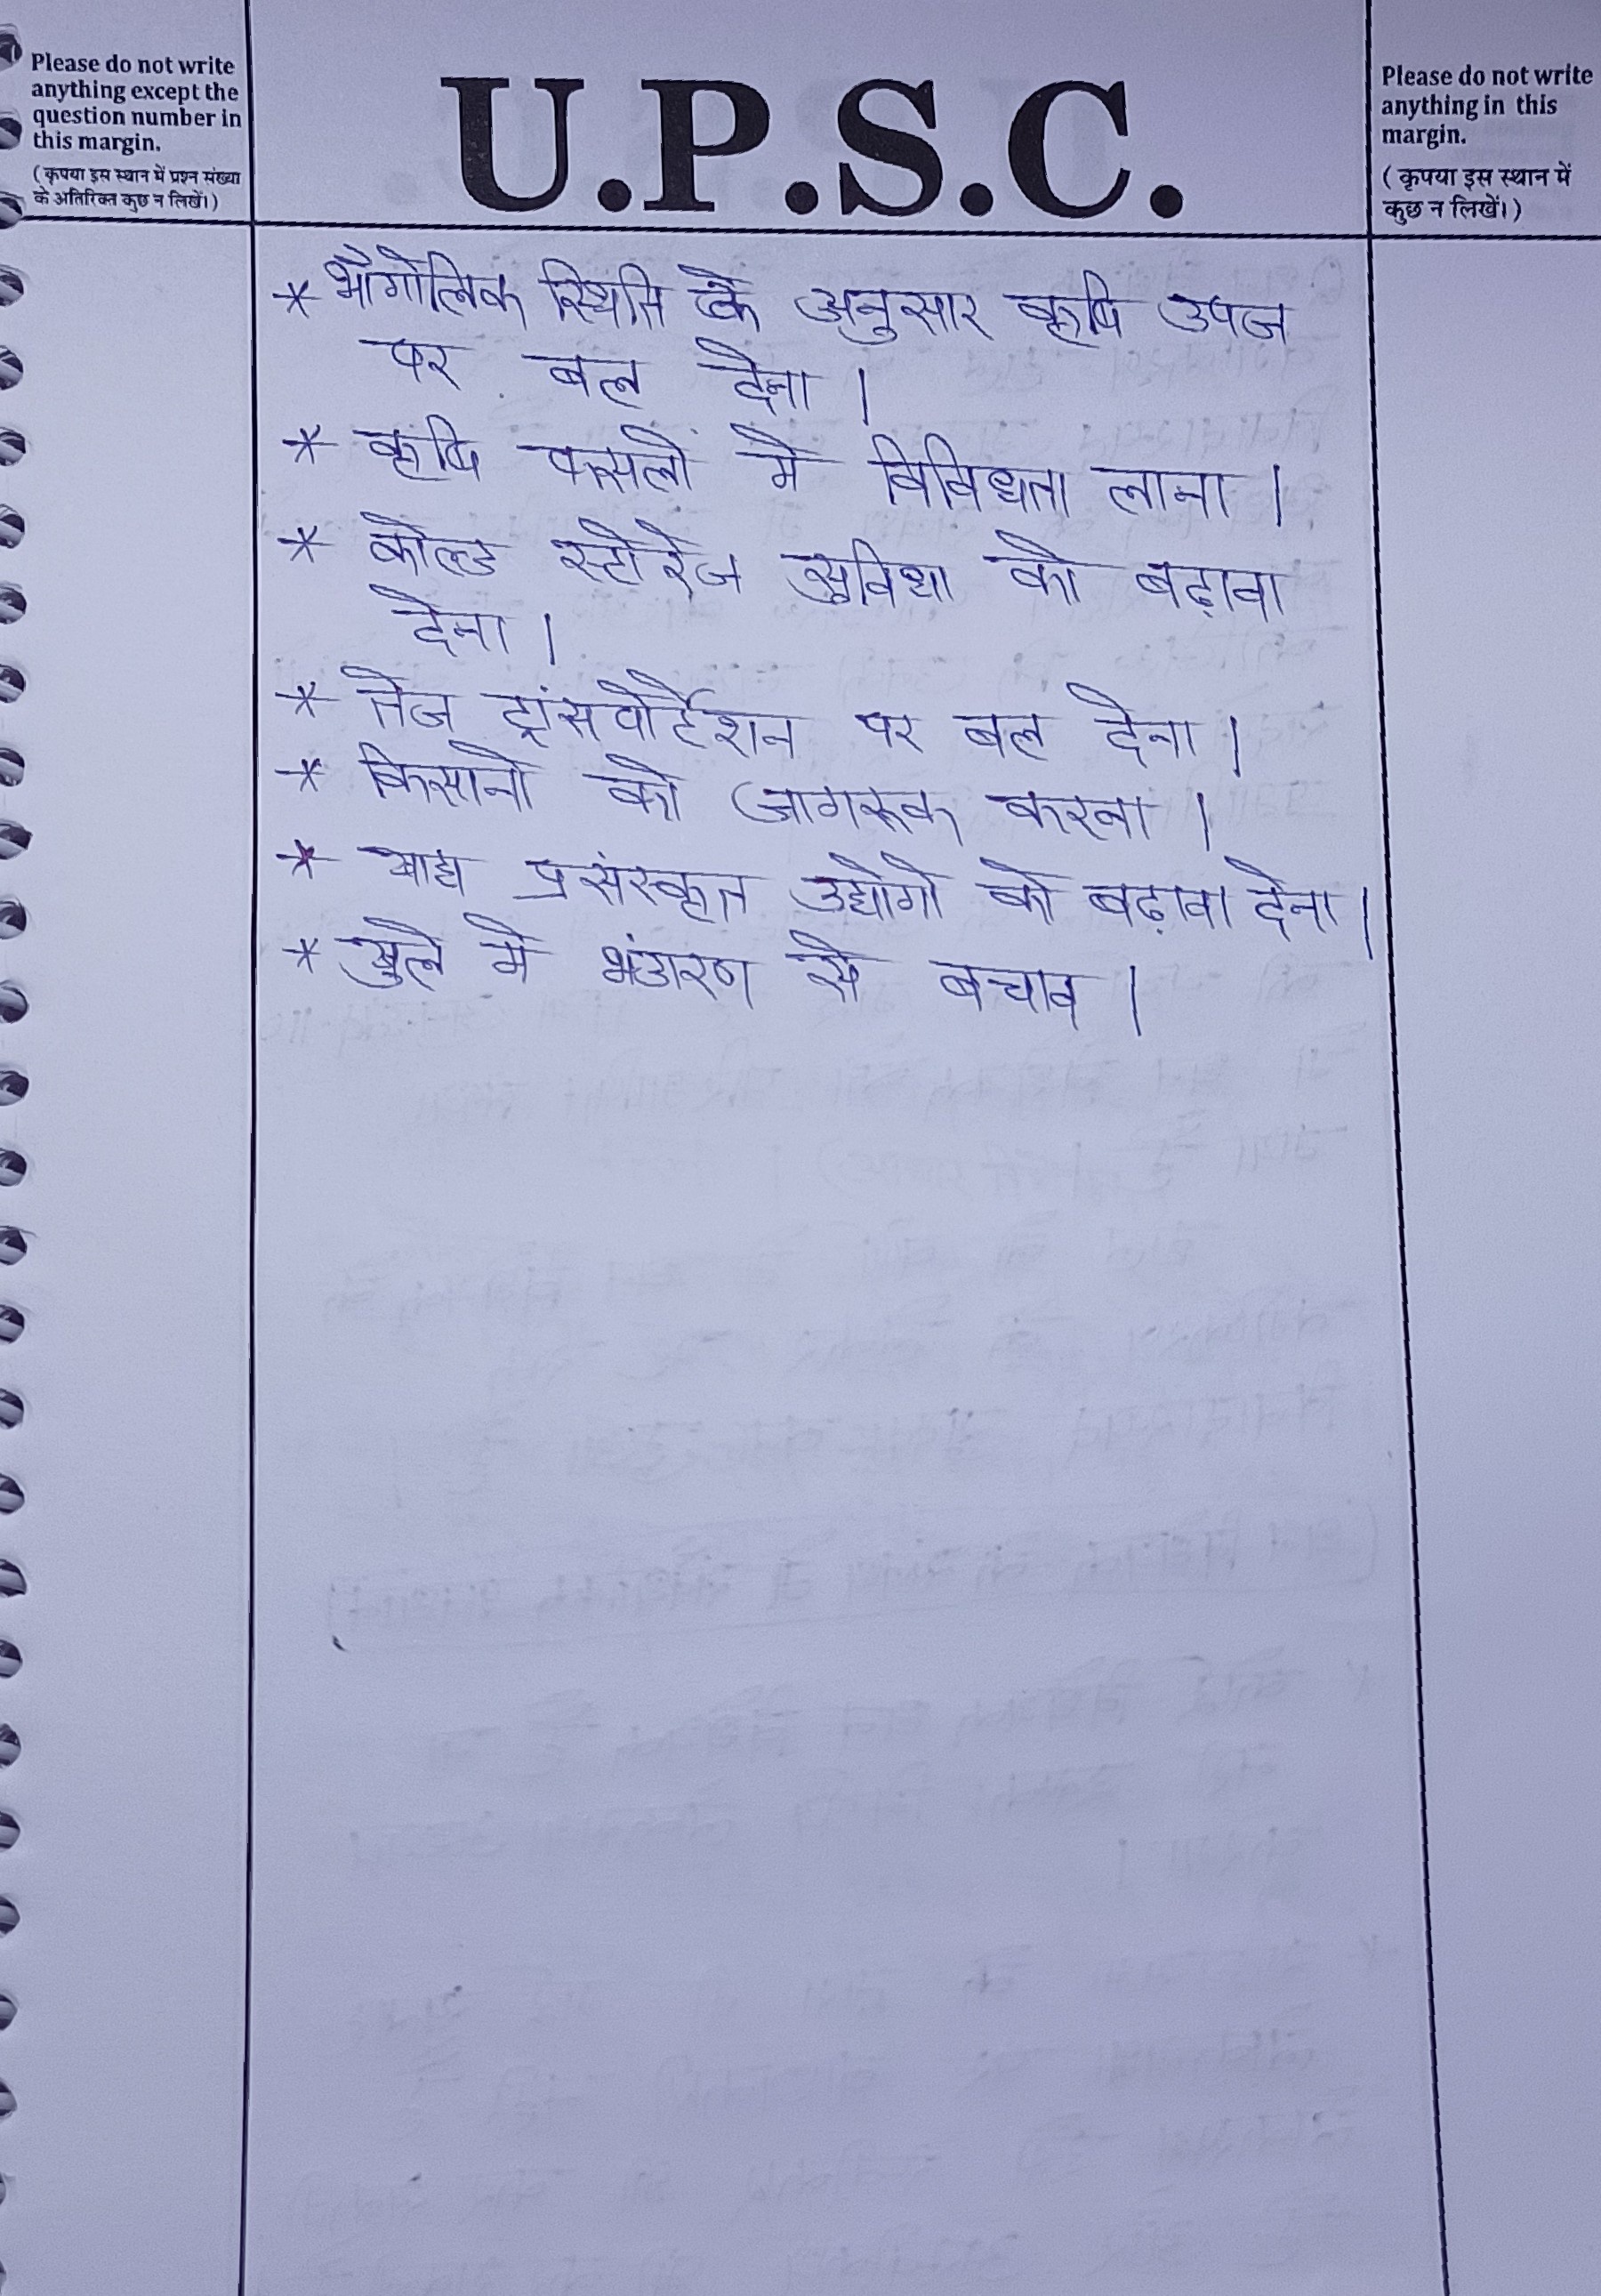 Please do not write
anything except the
question number in
this margin.
(कृपया इस स्थान में प्रश्न संख्या
के अतिरिक्त कुछ न लिखें।)
U.P.S.C.
Please do not write
anything in this
margin.
(कृपया इस स्थान में
कुछ न लिखें।)
* भौगोलिक स्थिति के अनुसार कृषि उपज
पर बल देना ।
* कृषि फसलों मे विविधता लाना ।
* कोल्ड स्टोरेज सुविधा को बढ़ावा
देना ।
* तेज ट्रांसपोर्टेशन पर बल देना ।
* किसानो को जागरूक करना ।
* खाद्य प्रसंस्कृत उद्योगो को बढ़ावा देना ।
* खुले मे भंडारण से बचाव ।